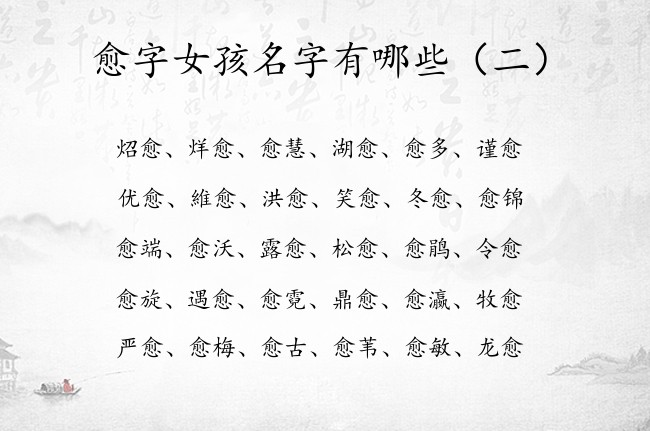 愈字女孩名字有哪些（二）
炤愈、烊愈、愈慧、湖愈、愈多、谨愈
优愈、維愈、洪愈、笑愈、冬愈、愈锦
愈端、愈沃、露愈、松愈、愈鹃、令愈
愈旋、遇愈、愈霓、鼎愈、愈瀛、牧愈
严愈、愈梅、愈古、愈苇、愈敏、龙愈